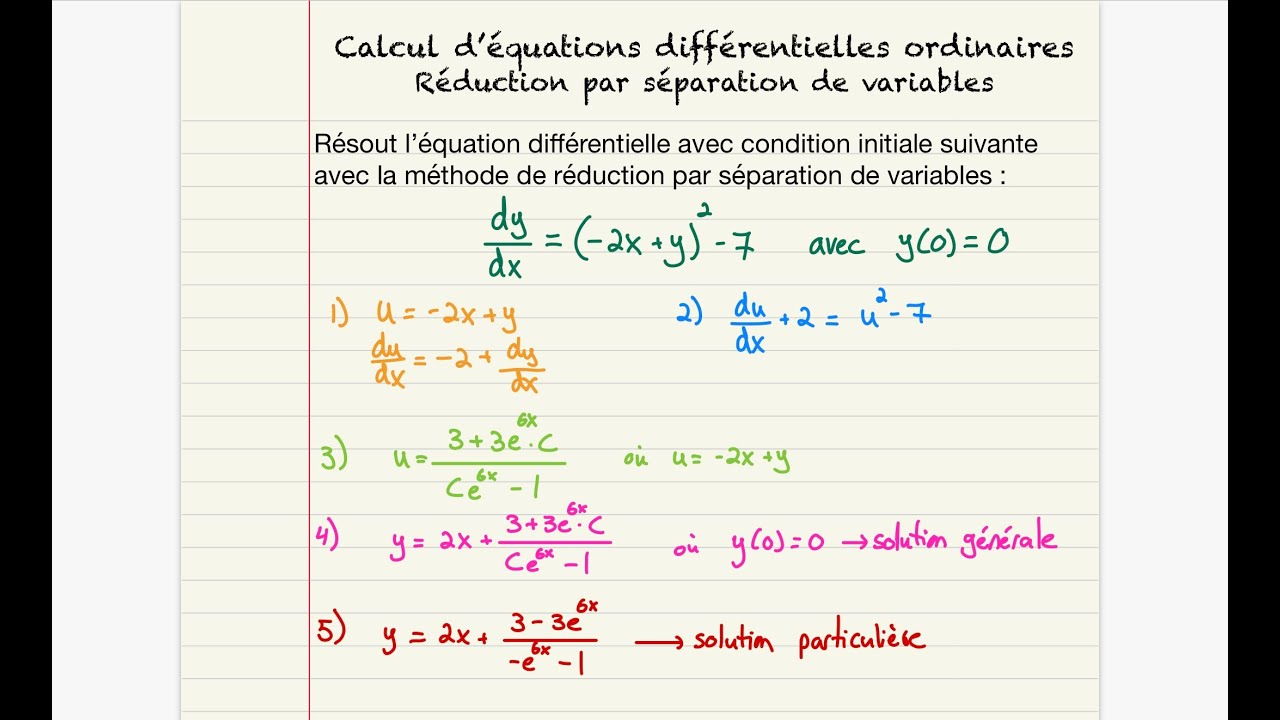 Calcul d'équations différentielles ordinaires
Réduction par séparation de variables
Résout l'équation différentielle avec condition initiale suivante
avec la méthode de réduction par séparation de variables :
dy/dx = (-2x+y)² - 7 avec y(0) = 0
1) u = -2x+y
du/dx = -2 + dy/dx
2) du/dx + 2 = u² - 7
3) u = (3+3e^(6x)·C)/(Ce^(6x) - 1) où u = -2x+y
4) y = 2x + (3+3e^(6x)·C)/(Ce^(6x) - 1) où y(0)=0 → solution générale
5) y = 2x + (3-3e^(6x))/(-e^(6x) - 1) → solution particulière